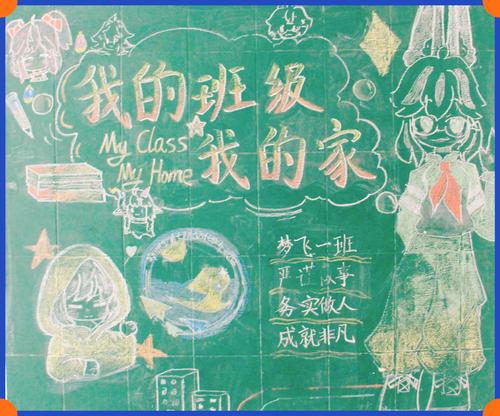 我的班级
My Class
我的家
My Home
梦飞一班
严谨 事
务实做人
成就非凡